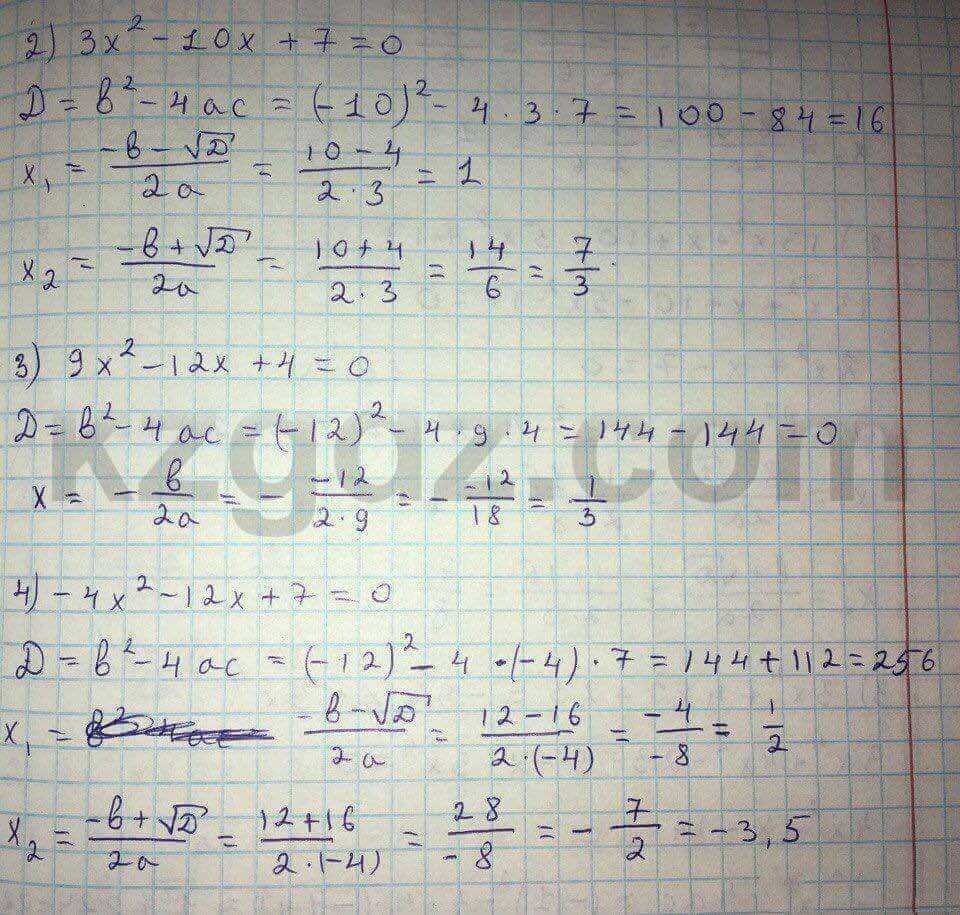 2) 3x² - 10x + 7 = 0
Д = в² - 4ac = (-10)² - 4 · 3 · 7 = 100 - 84 = 16
x₁ = (-в - √Д)/(2a) = (10 - 4)/(2 · 3) = 1
x₂ = (-в + √Д)/(2a) = (10 + 4)/(2 · 3) = 14/6 = 7/3
3) 9x² - 12x + 4 = 0
Д = в² - 4ac = (-12)² - 4 · 9 · 4 = 144 - 144 = 0
x = - в/(2a) = - (-12)/(2 · 9) = - (-12)/18 = 1/3
4) -4x² - 12x + 7 = 0
Д = в² - 4ac = (-12)² - 4 · (-4) · 7 = 144 + 112 = 256
x₁ = (-в - √Д)/(2a) = (12 - 16)/(2 · (-4)) = (-4)/(-8) = 1/2
x₂ = (-в + √Д)/(2a) = (12 + 16)/(2 · (-4)) = 28/(-8) = - 7/2 = -3,5
kzgdz.com